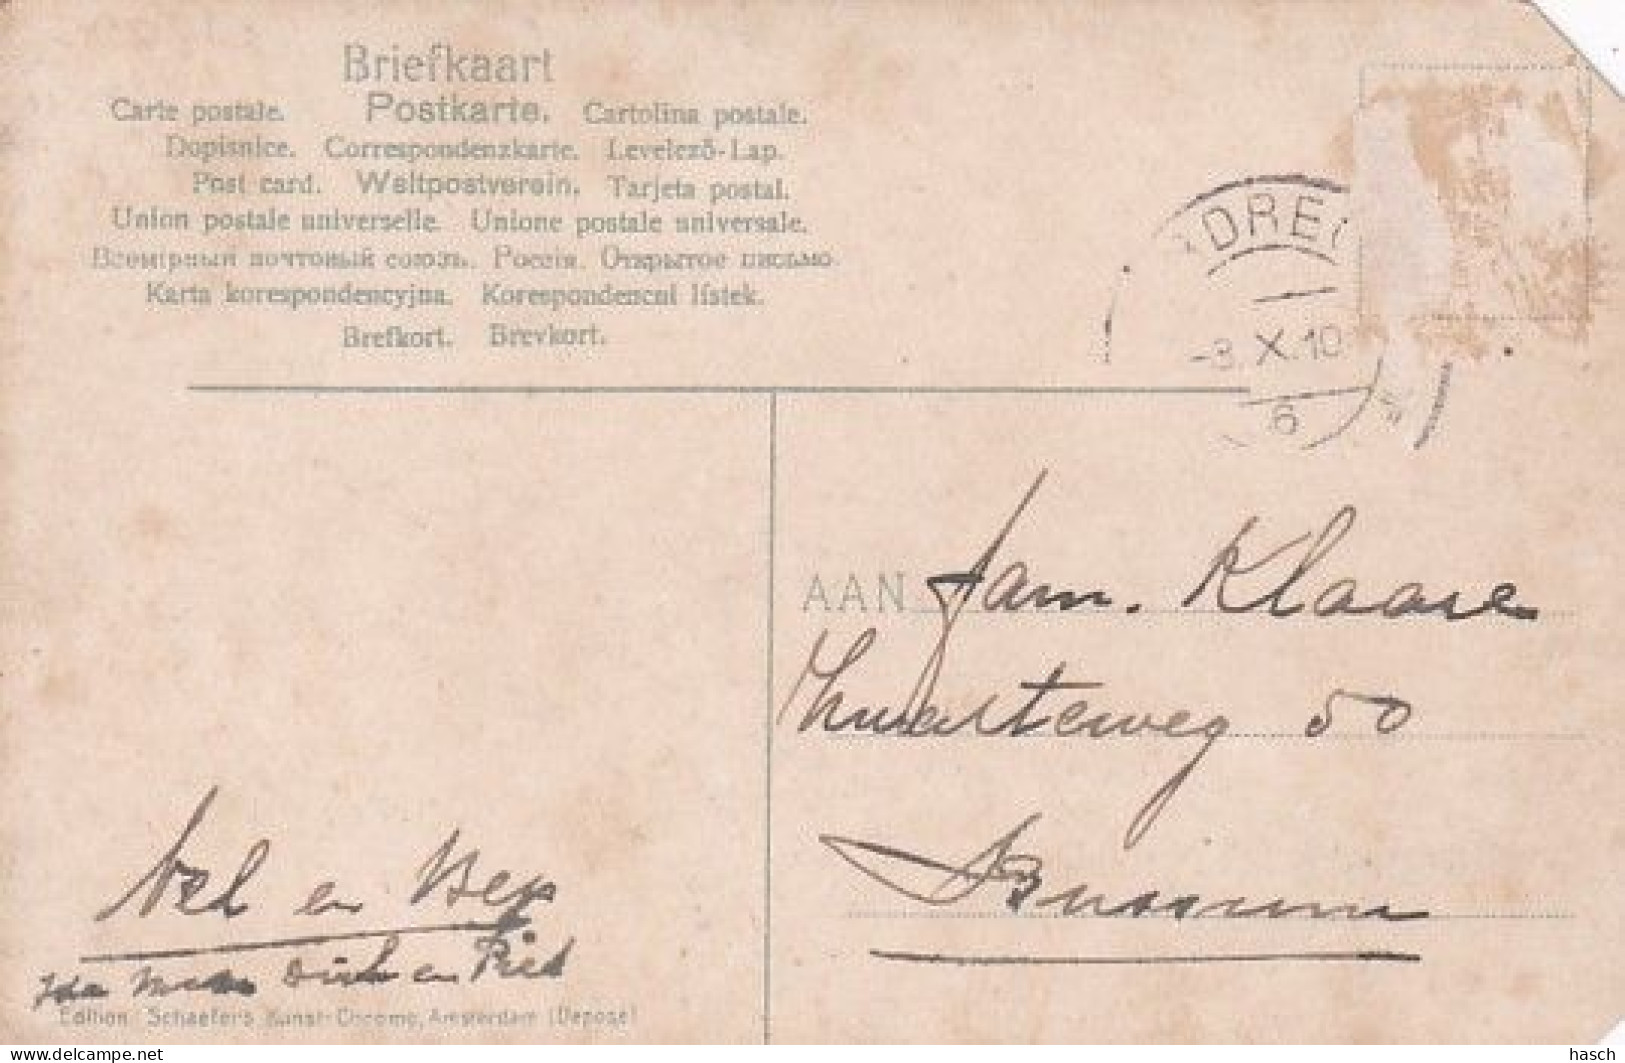 Briefkaart
Carte postale. Postkarte. Cartolina postale.
Dopisnice. Correspondenzkarte. Levelező-Lap.
Post card. Weltpostverein. Tarjeta postal.
Union postale universelle. Unione postale universale.
Всемірный почтовый союзъ. Россія. Открытое письмо.
Karta korespondencyjna. Korespondencní lístek.
Brefkort. Brevkort.
-3.X.10
6
AAN Fam. Klaare
50
Bussum
Nel en Bep
en Piet
Edition Schaefers Kunst-Chromo, Amsterdam (Deposé)
https://www.delcampe.net
hasch